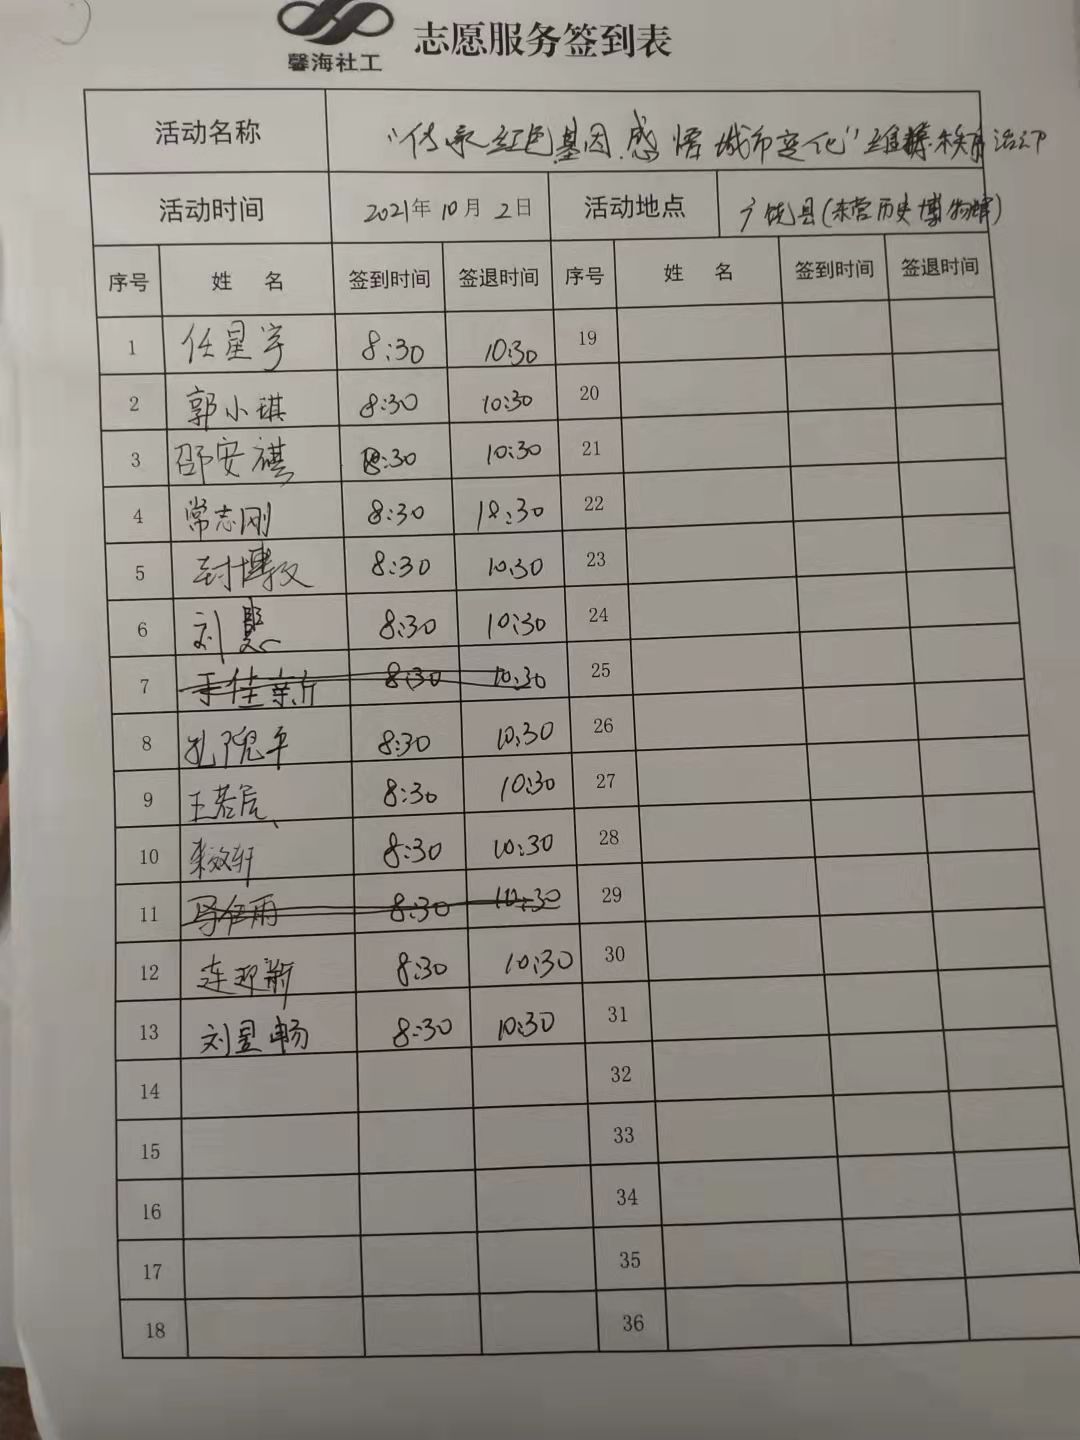 馨海社工
志愿服务签到表
活动名称 “传承红色基因 感悟城市变化” 秩序活动
活动时间 2021年10月2日 活动地点 广饶县(东营历史博物馆)
序号 姓 名 签到时间 签退时间 序号 姓 名 签到时间 签退时间
1 任星宇 8:30 10:30 19
2 郭小琪 8:30 10:30 20
3 邵安祺 8:30 10:30 21
4 常志刚 8:30 18:30 22
5 封博文 8:30 10:30 23
6 刘 8:30 10:30 24
7 于佳新 8:30 10:30 25
8 孔 平 8:30 10:30 26
9 王若 8:30 10:30 27
10 轩 8:30 10:30 28
11 雨 8:30 10:30 29
12 连迎新 8:30 10:30 30
13 刘昱畅 8:30 10:30 31
14 32
15 33
16 34
17 35
18 36